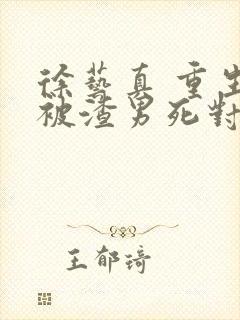 徐藝真 重生
被渣男死對
王郁琦